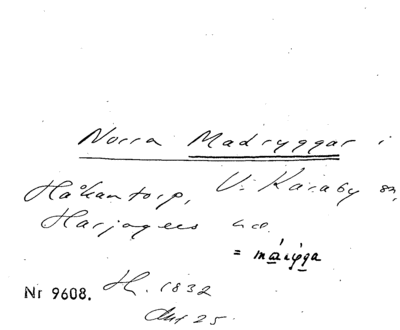 Norra Madryggar i
Håkantorp, V. Karaby sn,
Harjagers hd.
= 
Nr 9608. H. 1832
Akt 25